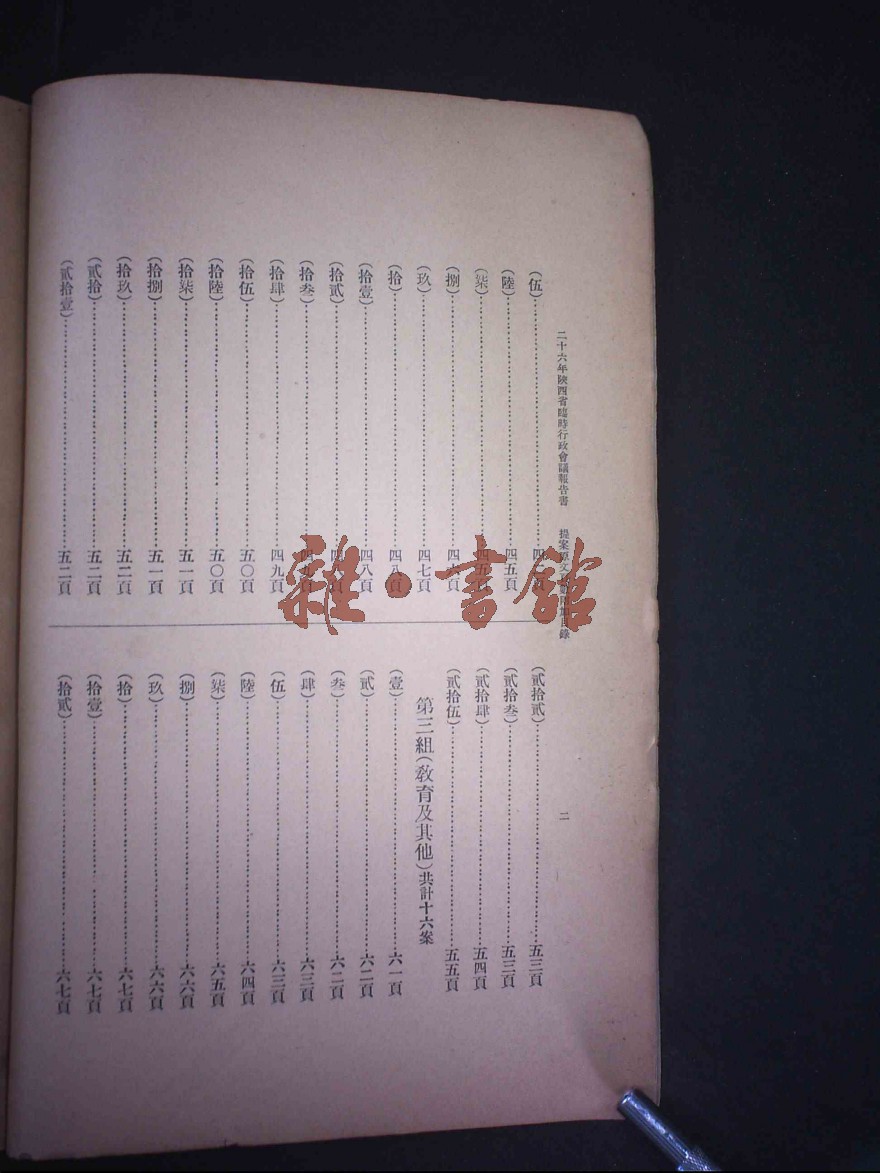 二十六年陝西省臨時行政會議報告書 提案原文 目錄 二
(伍)……頁
(陸)……四五頁
(柒)……四五頁
(捌)……四六頁
(玖)……四七頁
(拾)……四八頁
(拾壹)……四八頁
(拾貳)……頁
(拾叁)……四九頁
(拾肆)……四九頁
(拾伍)……五〇頁
(拾陸)……五〇頁
(拾柒)……五一頁
(拾捌)……五一頁
(拾玖)……五二頁
(貳拾)……五二頁
(貳拾壹)……五二頁
(貳拾貳)……五三頁
(貳拾叁)……五三頁
(貳拾肆)……五四頁
(貳拾伍)……五五頁
第三組(教育及其他)共計十六案
(壹)……六一頁
(貳)……六二頁
(叁)……六二頁
(肆)……六三頁
(伍)……六三頁
(陸)……六四頁
(柒)……六五頁
(捌)……六六頁
(玖)……六六頁
(拾)……六七頁
(拾壹)……六七頁
(拾貳)……六七頁
雜·書館